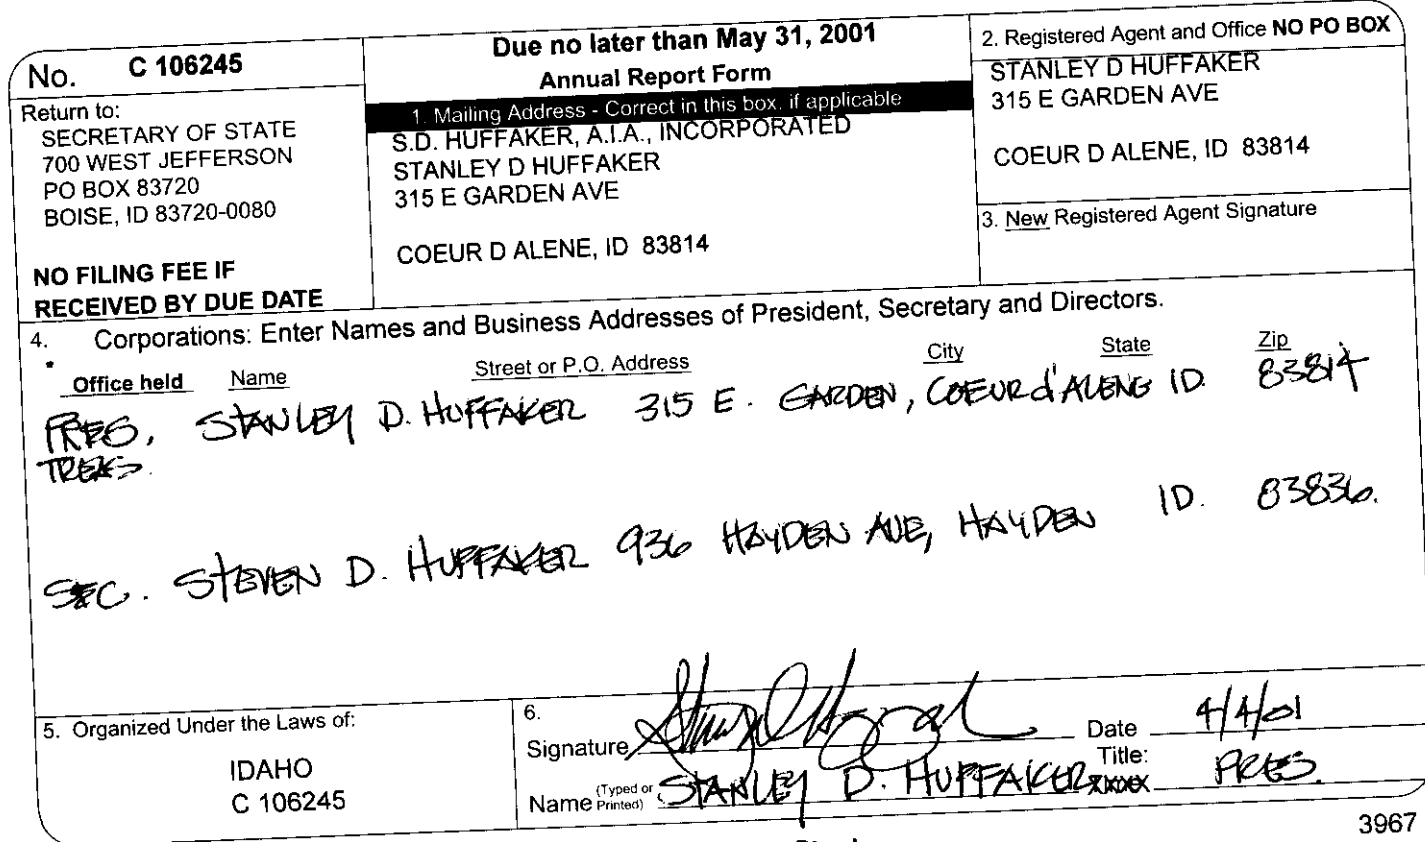 No. C 106245
Return to:
SECRETARY OF STATE
700 WEST JEFFERSON
PO BOX 83720
BOISE, ID 83720-0080
NO FILING FEE IF
RECEIVED BY DUE DATE
Due no later than May 31, 2001
Annual Report Form
1. Mailing Address - Correct in this box, if applicable
S.D. HUFFAKER, A.I.A., INCORPORATED
STANLEY D HUFFAKER
315 E GARDEN AVE
COEUR D ALENE, ID 83814
2. Registered Agent and Office NO PO BOX
STANLEY D HUFFAKER
315 E GARDEN AVE
COEUR D ALENE, ID 83814
3. New Registered Agent Signature
4. Corporations: Enter Names and Business Addresses of President, Secretary and Directors.
Office held Name Street or P.O. Address City State Zip
PRES, STANLEY D. HUFFAKER 315 E. GARDEN, COEUR d'ALENE ID. 83814
TREAS.
SEC. STEVEN D. HUFFAKER 936 HAYDEN AVE, HAYDEN ID. 83836.
5. Organized Under the Laws of:
IDAHO
C 106245
6.
Signature Date 4/4/01
Name (Typed or Printed) STANLEY D. HUFFAKER Title: PRES.
3967